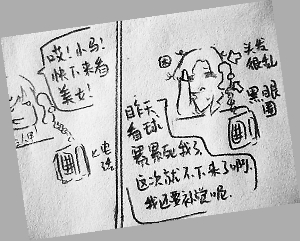 哎！小马！
快下来看
美女！
电话
头发
很乱
黑眼
圈
昨天
看球
累累死我了，
这次就不下来了啊，
我还要补觉呢。